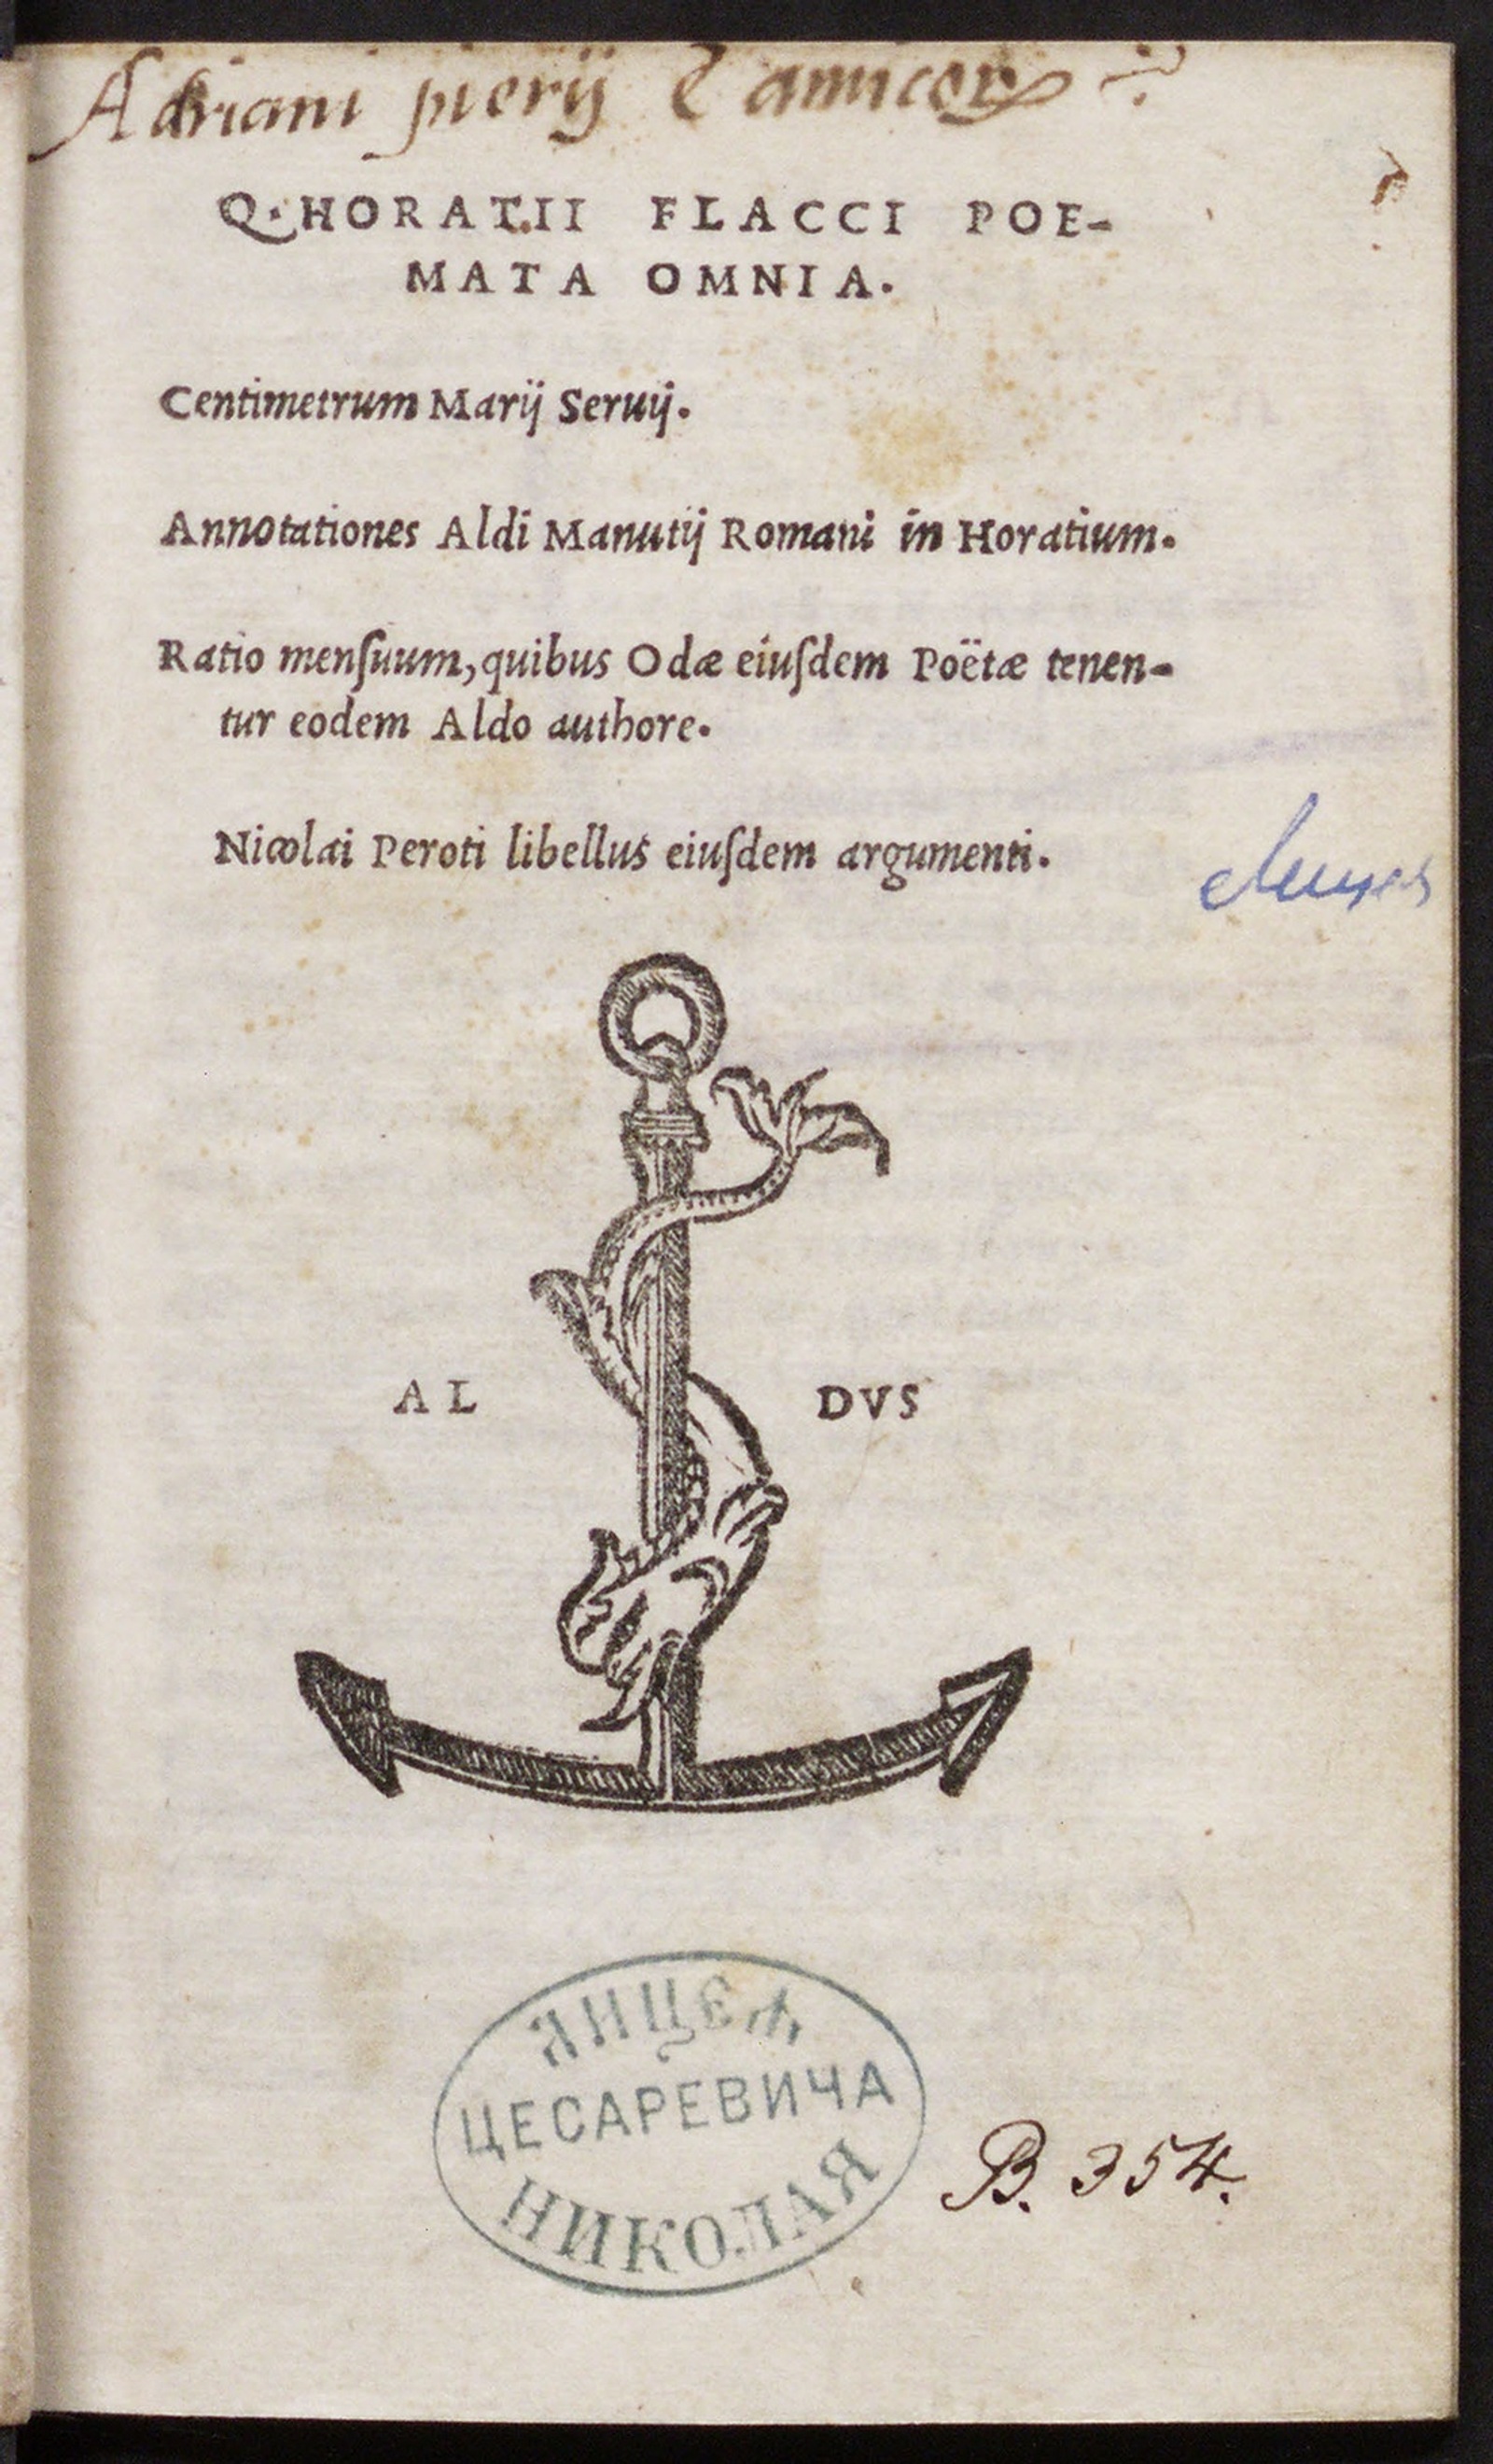 Adriani pierij & amicorꝝ
Q. HORATII FLACCI POE-
MATA OMNIA.
Centimetrum Marij Seruij.
Annotationes Aldi Manutij Romani in Horatium.
Ratio mensuum, quibus Odæ eiuſdem Poëtæ tenen-
tur eodem Aldo authore.
Nicolai Peroti libellus eiuſdem argumenti.
AL DVS
ЛИЦЕЙ
ЦЕСАРЕВИЧА
НИКОЛАЯ
B. 354.